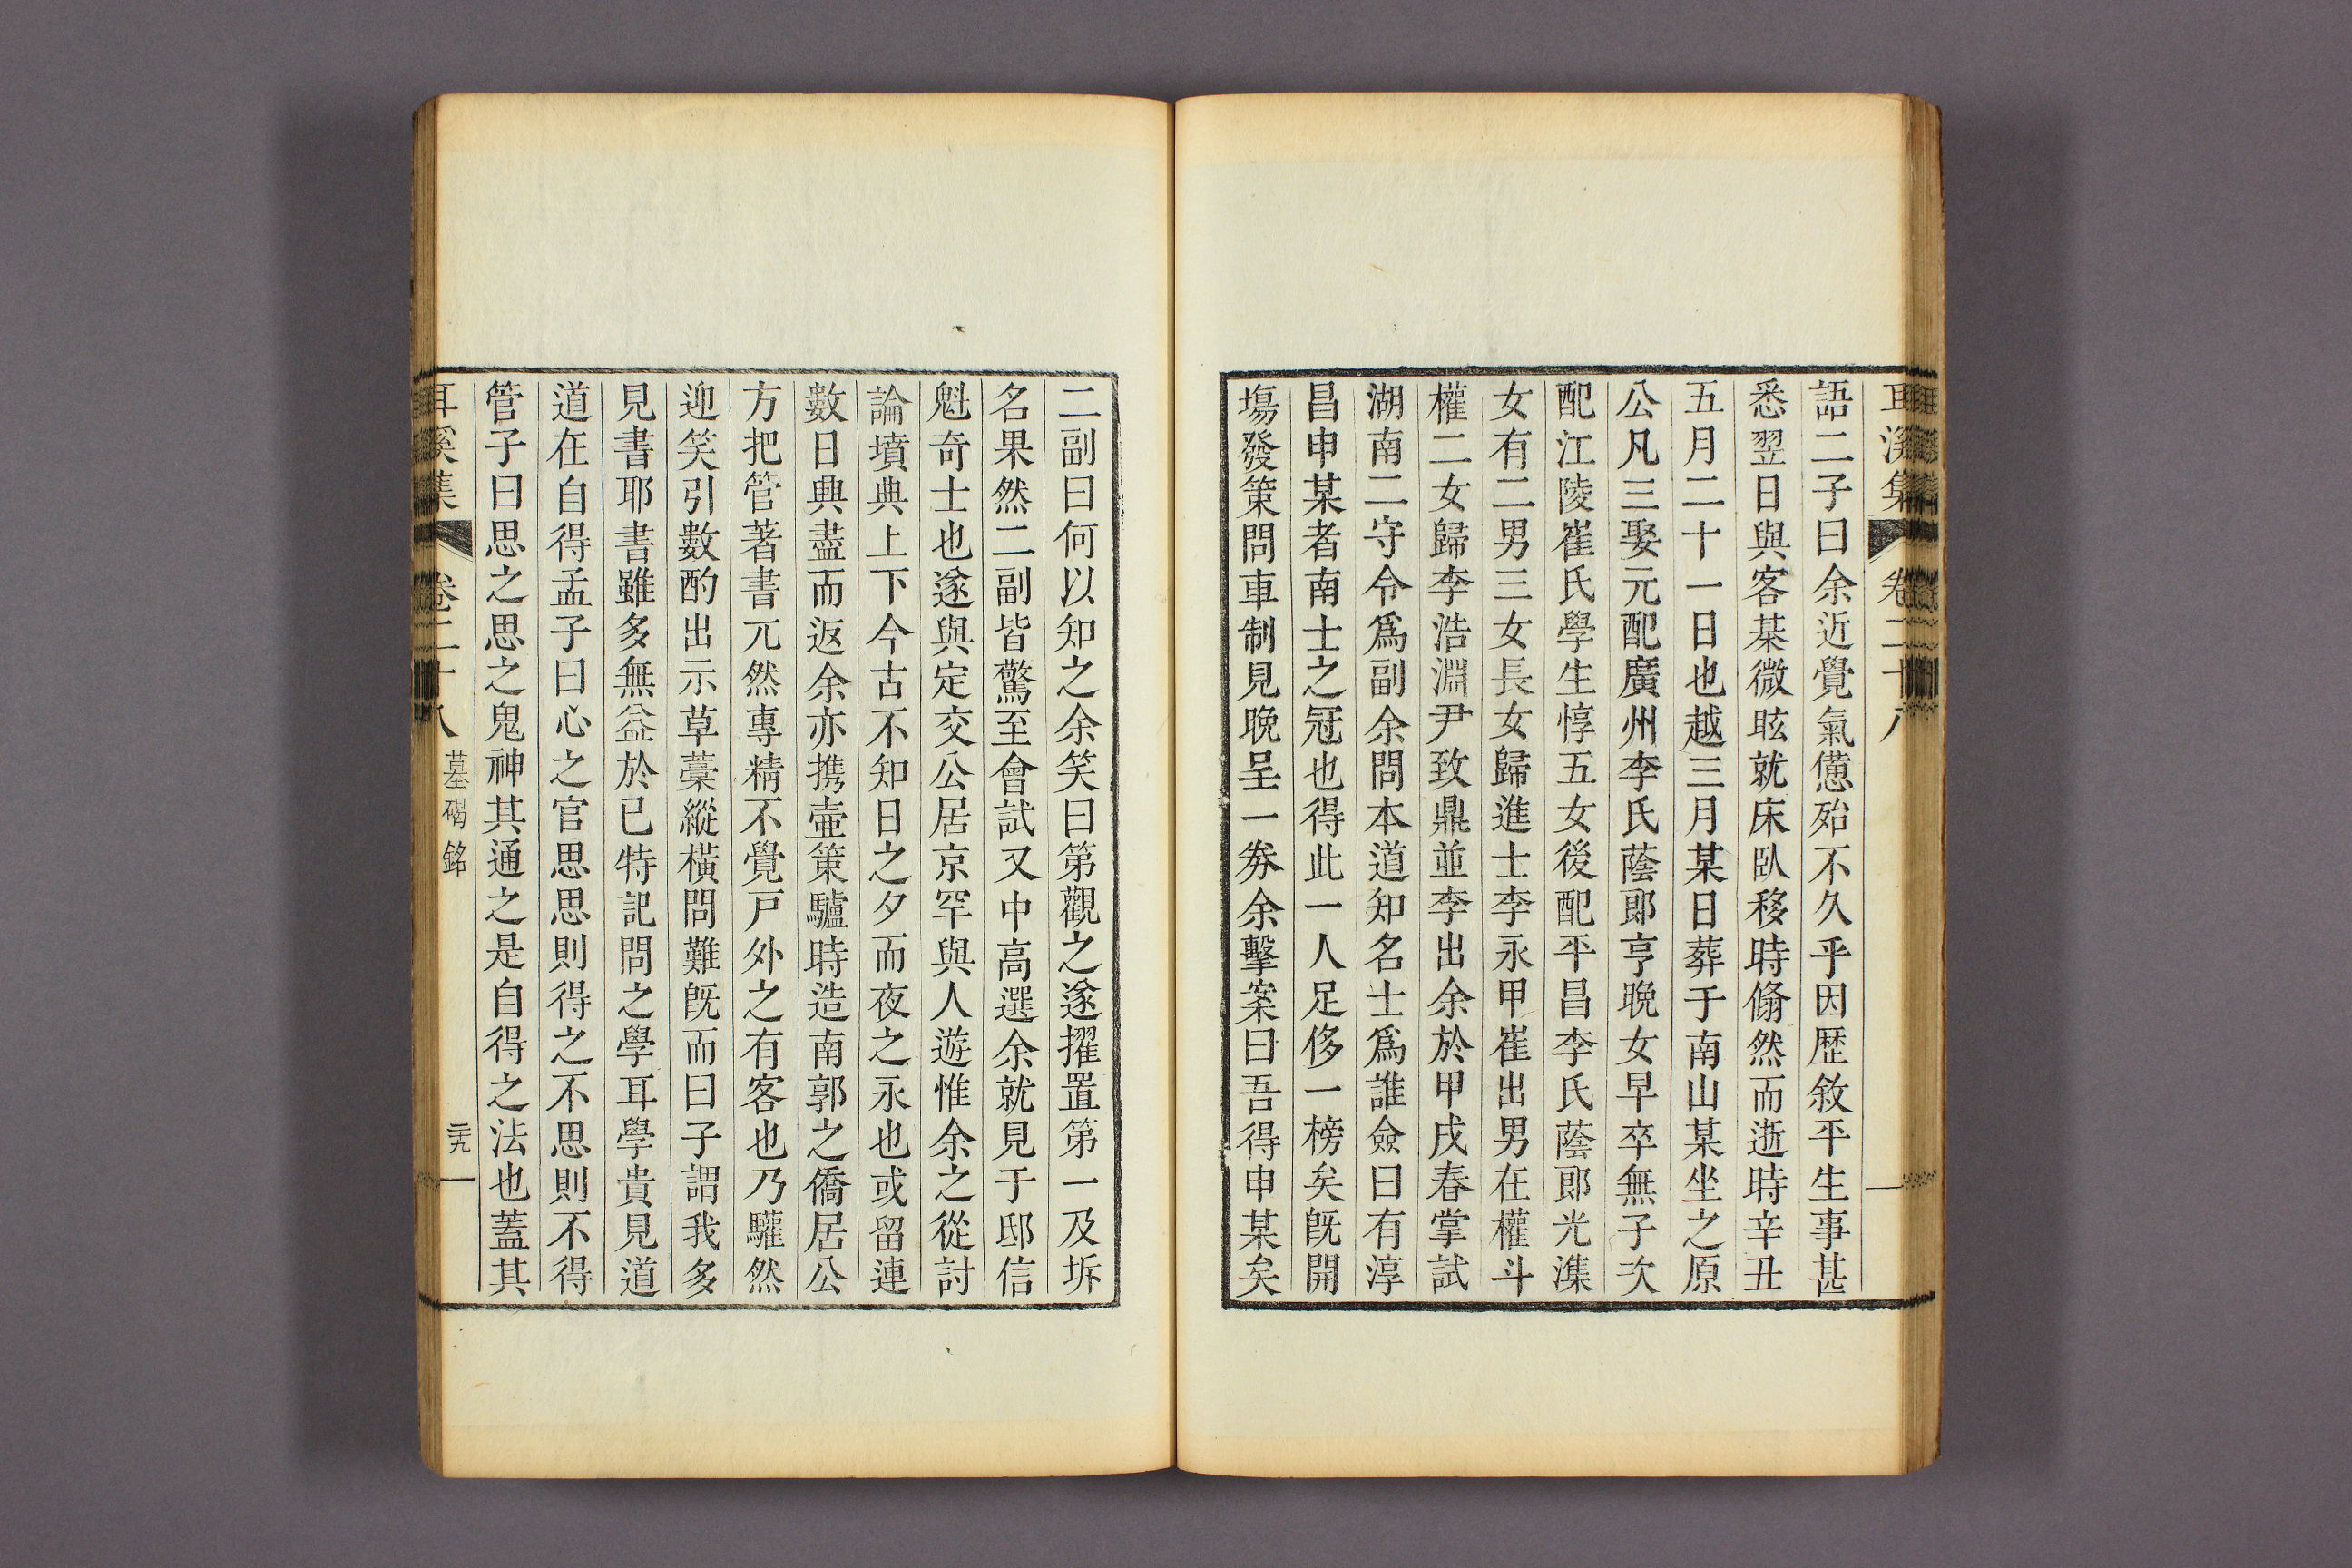 耳溪集 卷二十八
語二子曰余近覺氣憊殆不久乎因歷敘平生事甚
悉翌日與客棊微眩就床臥移時翛然而逝時辛丑
五月二十一日也越三月某日葬于南山某坐之原
公凡三娶元配廣州李氏蔭郎亨晚女早卒無子次
配江陵崔氏學生惇五女後配平昌李氏蔭郎光潗
女有二男三女長女歸進士李永甲崔出男在權斗
權二女歸李浩淵尹致鼎並李出余於甲戌春掌試
湖南二守令爲副余問本道知名士爲誰僉曰有淳
昌申某者南士之冠也得此一人足侈一榜矣旣開
塲發策問車制見晚呈一券余擊案曰吾得申某矣
二副曰何以知之余笑曰第觀之遂擢置第一及坼
名果然二副皆驚至會試又中高選余就見于邸信
魁奇士也遂與定交公居京罕與人遊惟余之從討
論墳典上下今古不知日之夕而夜之永也或留連
數日興盡而返余亦携壷策驢時造南郭之僑居公
方把管著書兀然專精不覺戸外之有客也乃驩然
迎笑引數酌出示草藁縱橫問難旣而曰子謂我多
見書耶書雖多無益於已特記問之學耳學貴見道
道在自得孟子曰心之官思思則得之不思則不得
管子曰思之思之鬼神其通之是自得之法也蓋其
耳溪集 卷二十八 墓碣銘 三九